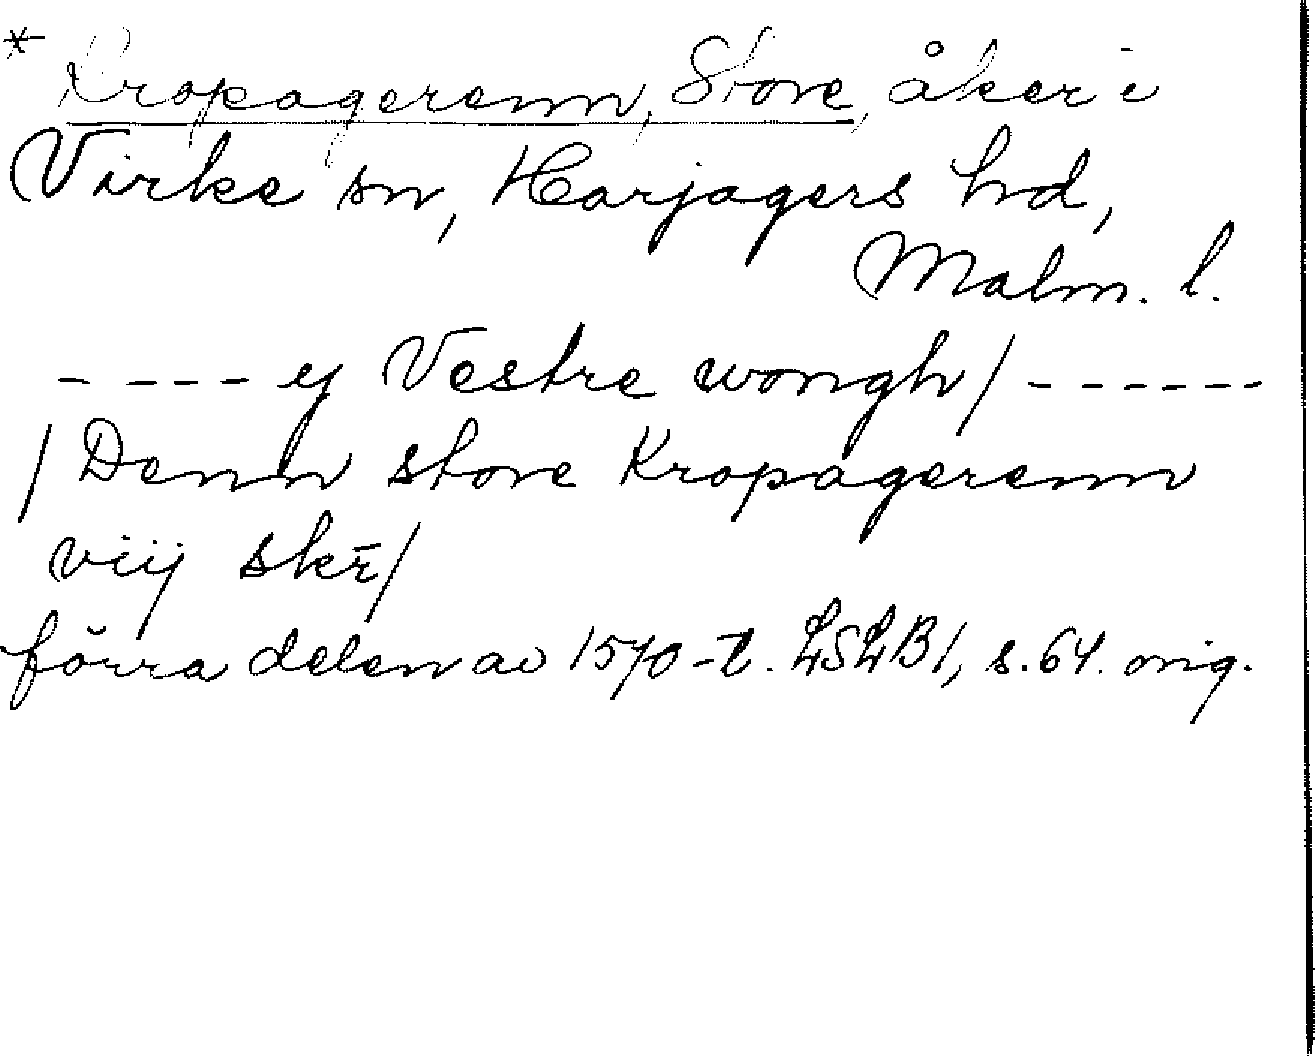 * Kropagerenn, Store, åker i
Virke sn, Harjagers hd,
Malm. l.
- - - - - ej Vestre wongh/ - - - - - -
/ Denn store Kropagerenn
viij skr̄/
förra delen av 1570-t. LSLB1, s. 64. orig.